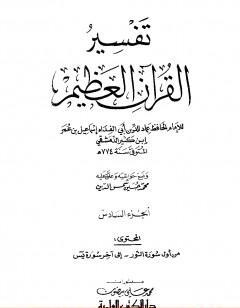 تفسير
القرآن العظيم
للإمام الحافظ عماد الدين أبي الفداء إسماعيل بن عمر
ابن كثير الدمشقي
المتوفى سنة ٧٧٤ هـ
وضع حواشيه وعلق عليه
محمد حسين شمس الدين
الجزء السادس
المحتوى:
من أول سورة النور - إلى آخر سورة يس
منشورات
محمد علي بيضون
دار الكتب العلمية